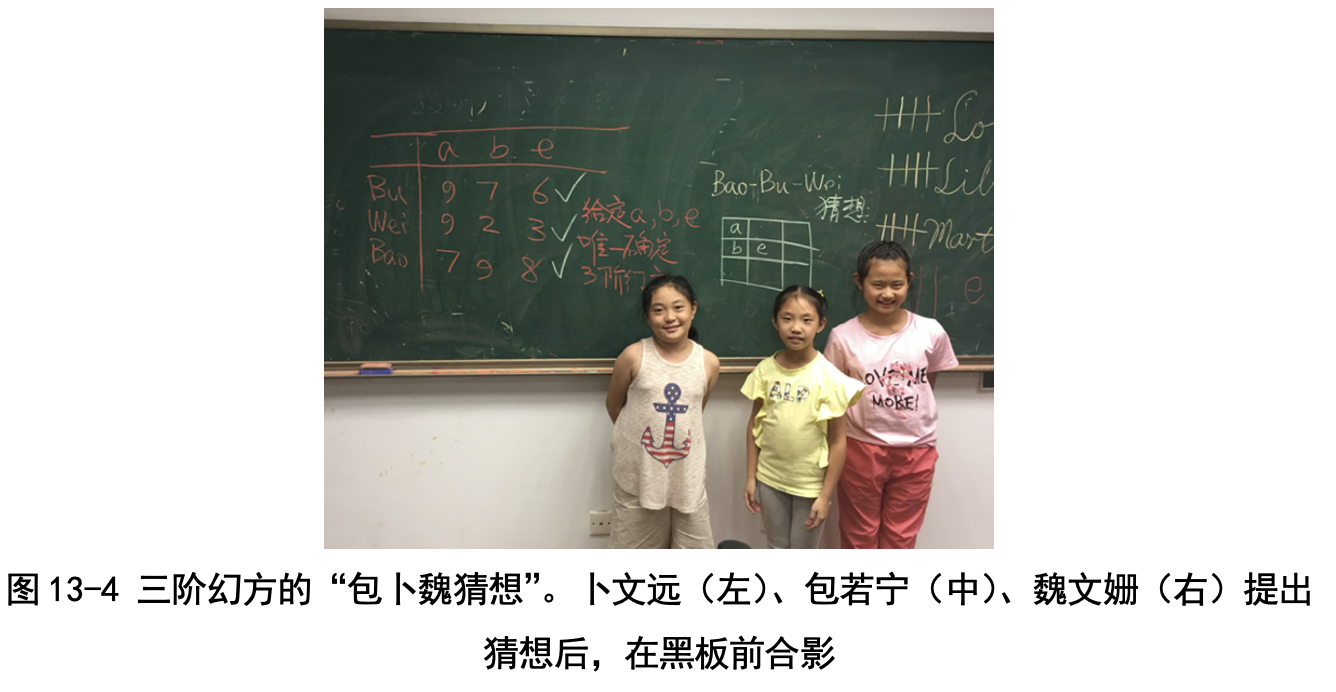 a b e
Bu 9 7 6 ✓
Wei 9 2 3 ✓
Bao 7 9 8 ✓
给定a,b,e
唯一确定
3阶幻
Bao-Bu-Wei
猜想:
a
b e
Lo
Lil
Mart
e
ALP
LOVE ME
MORE!
图 13-4 三阶幻方的“包卜魏猜想”。卜文远（左）、包若宁（中）、魏文姗（右）提出
猜想后，在黑板前合影